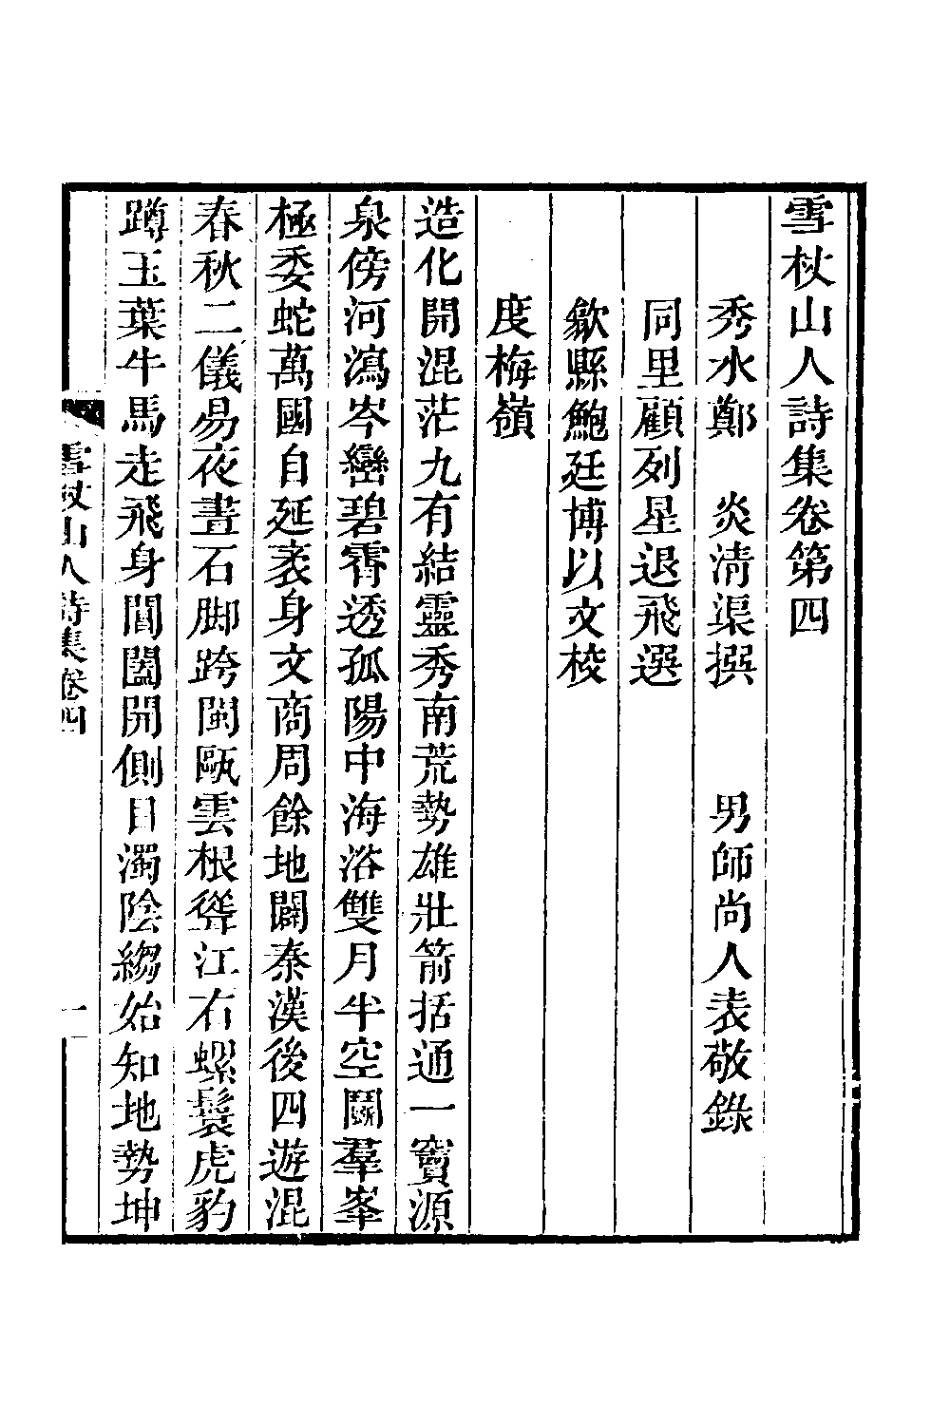 雪杖山人詩集卷第四
秀水鄭　炎清渠撰　男師尚人表敬錄
同里顧列星退飛選
歙縣鮑廷博以文校
度梅嶺
造化開混茫九有結靈秀南荒勢雄壯箭括通一竇源
泉傍河瀉岑巒碧霄透孤陽中海浴雙月半空鬭羣峯
極委蛇萬國自延袤身文商周餘地闢秦漢後四遊混
春秋二儀易夜晝石脚跨閩甌雲根聳江右螺鬟虎豹
蹲玉葉牛馬走飛身閶闔開側目濁陰縐始知地勢坤
雪杖山人詩集卷四
一